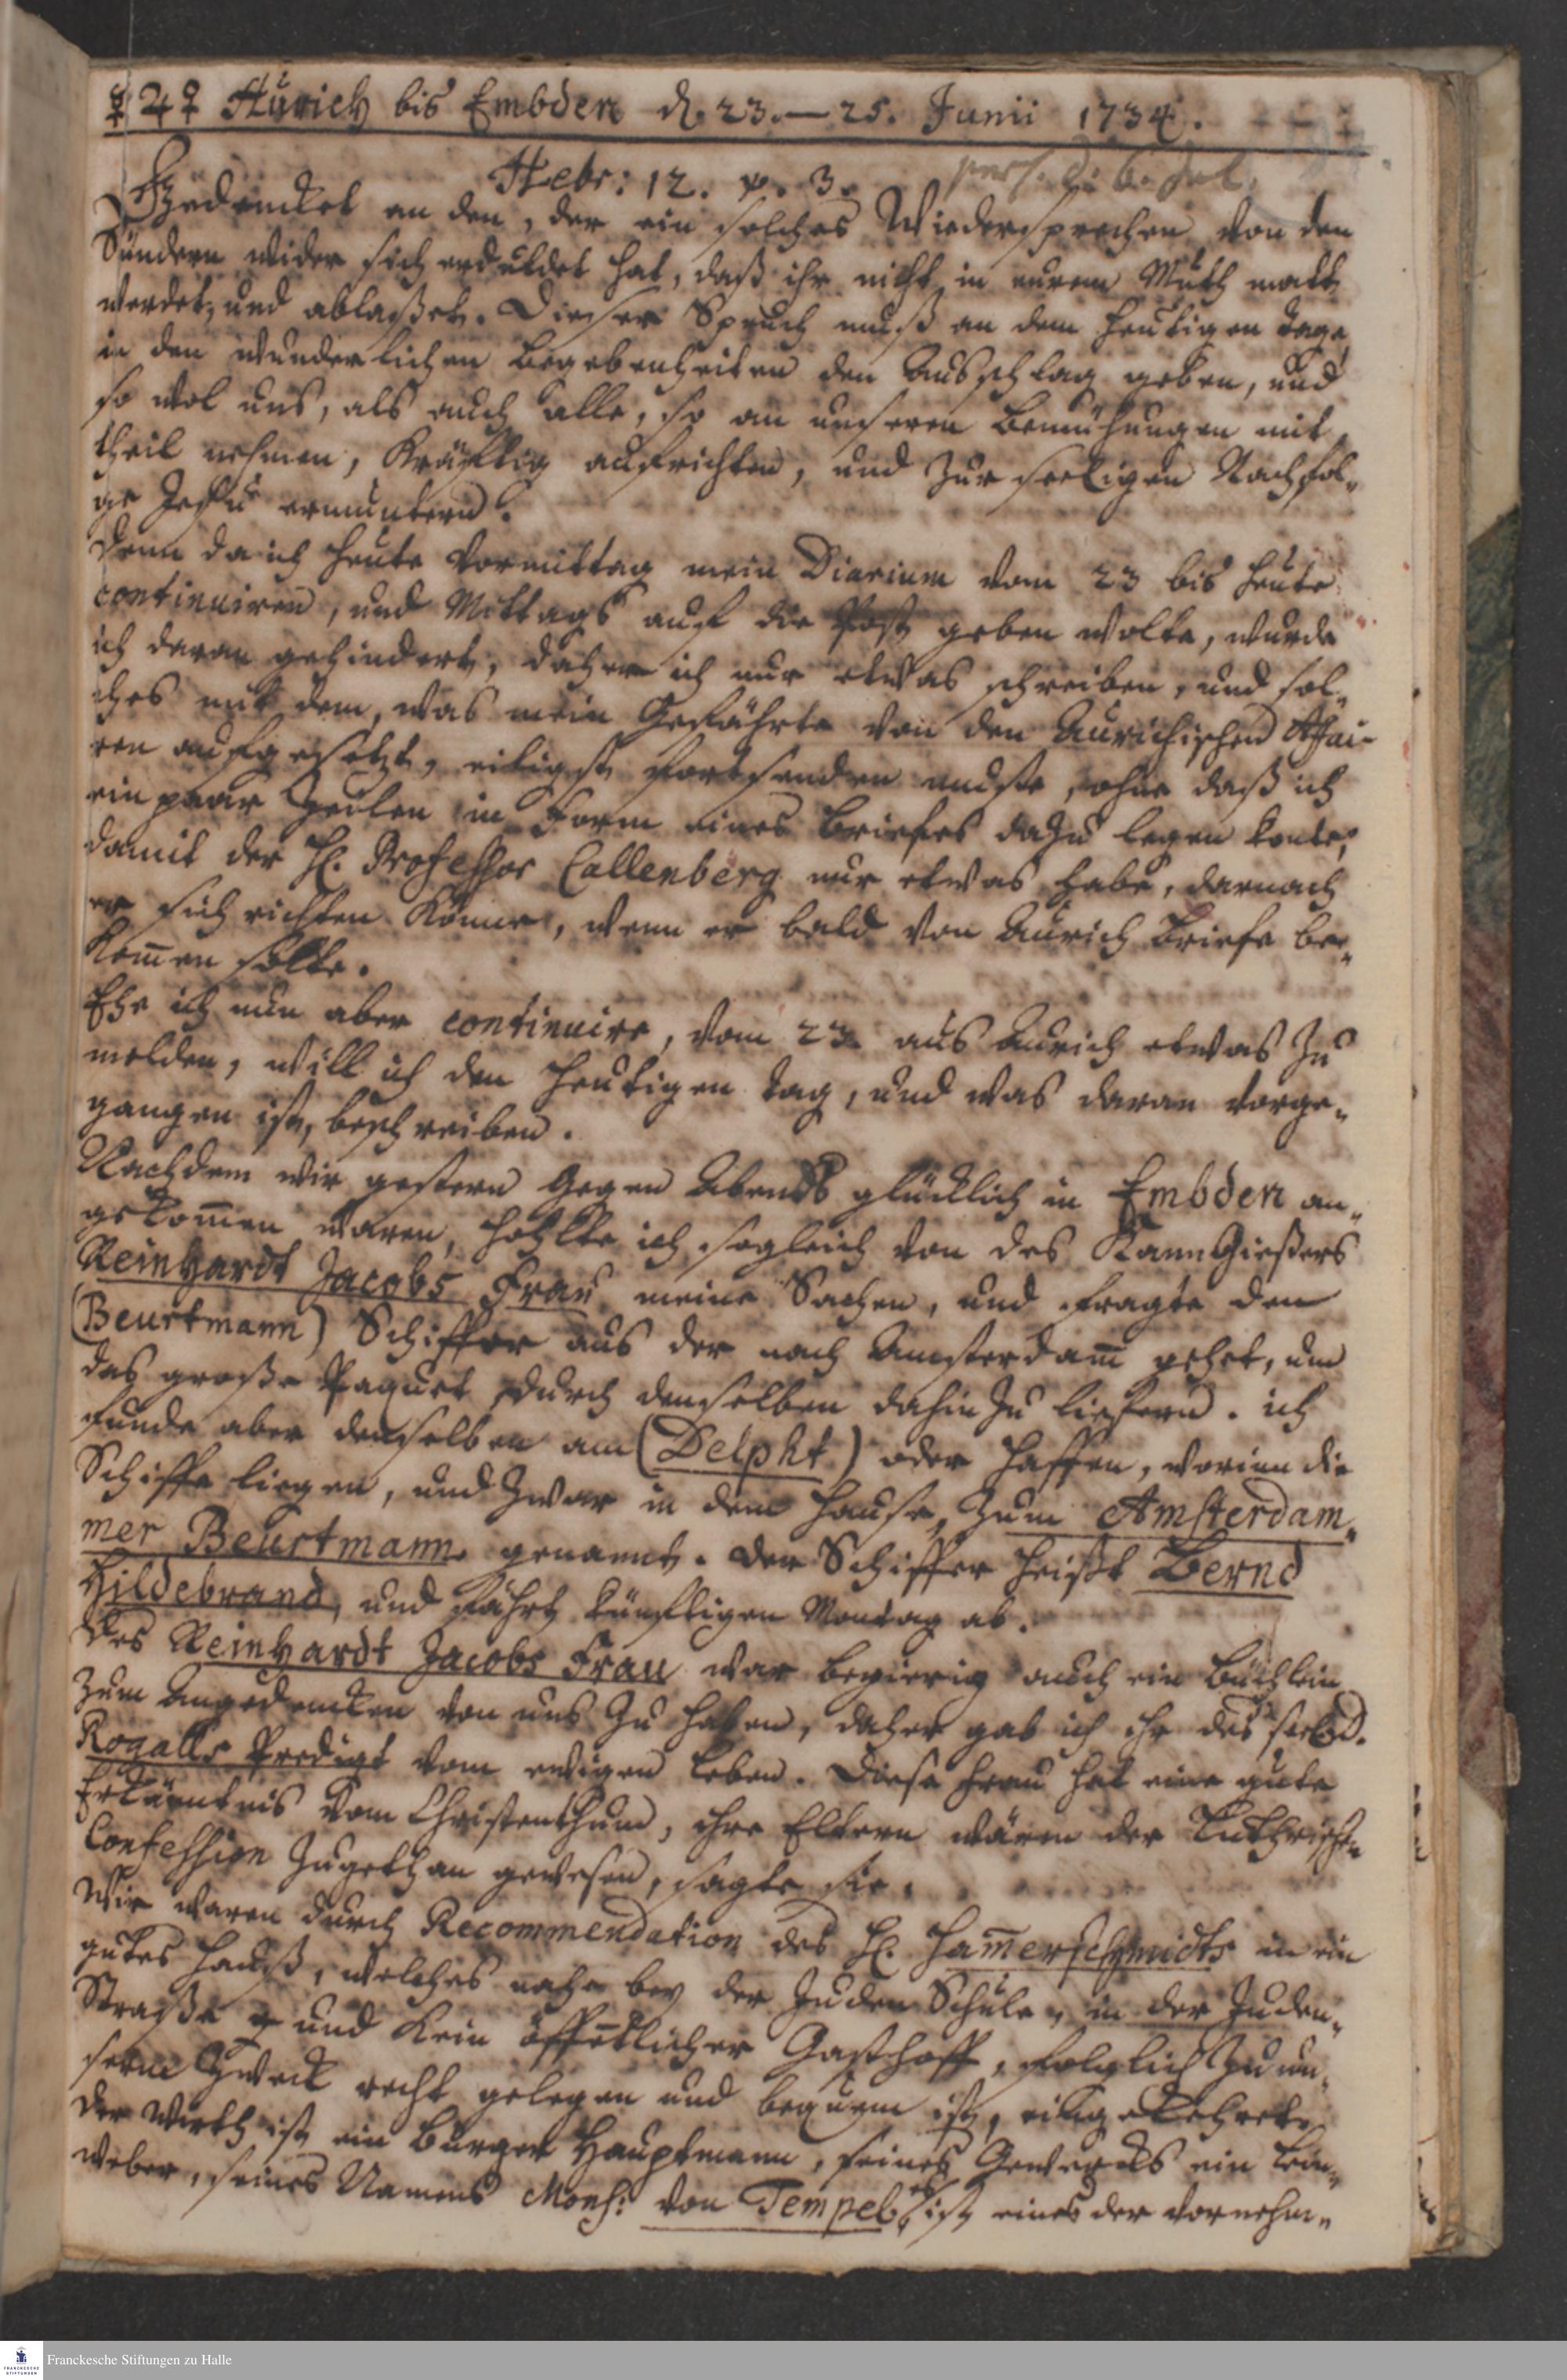 ☿ ♃ ♀ Aurich bis Embden d. 23.–25. Junii 1734.
Hebr: 12. v. 3.
Gedencket an den, der ein solches Wiedersprechen von den
Sündern wider sich erduldet hat, daß ihr nicht in eurem Muth matt
werdet, und ablaßet. Dieser Spruch muß an dem heutigen tage
in den wunderlichen Begebenheiten den Ausschlag geben, und
so wol uns, als auch alle, so an unseren Bemühungen mit
theil nehmen, kräfftig aufrichten, und zur seeligen Nachfol-
ge Jesu ermuntern.
Denn da ich heute Vormittag mein Diarium vom 23 bis heute
continuiren, und Mittags auf die Post geben wolte, wurde
ich daran gehindert, daher ich nur etwas schreiben, und sol-
ches mit dem, was mein Gefährte von den Aurichischen Affai-
ren aufgesetzt, eiligst fortsenden muste, ohne daß ich
ein paar Zeulen in Form eines Briefes dazu legen konte,
damit der H. Professor Callenberg nur etwas habe, darnach
er sich richten könne, wenn er bald von Aurich Briefe be-
kom̄en solte.
Ehe ich nun aber continuire, vom 23. aus Aurich etwas zu
melden, will ich den heutigen tag, und was daran vorge-
gangen ist, beschreiben.
Nachdem wir gestern gegen Abends glücklich in Embden an-
gekom̄en waren, hohlte ich sogleich von des Kann Gießers
Reinhardt Jacobs Frau meine Sachen, und fragte den
(Beurtmann) Schiffer aus der nach Amsterdam̄ gehet, um
das große Paquet durch denselben dahin zu liefern. ich
funde aber denselben am (Delpht) oder Haffen, worinn die
Schiffe liegen, und zwar in dem Hause, zum Amsterdam-
mer Beurtmann genannt. Der Schiffer heißt Bernd
Hildebrand, und fährt künfftigen Montag ab.
Des Reinhardt Jacobs Frau war begierig auch ein Büchlein
zum Angedencken von uns zu haben, daher gab ich ihr des
Rogalls Predigt vom ewigen Leben. Diese Frau hat eine gute
Erkäntnis vom Christenthum, ihre Eltern wären der Lutherischen
Confession zugethan gewesen, sagte sie.
Wir waren durch Recommendation des H. Ham̄erschmidts in ein
gutes Hauß, welches nahe bey der Juden Schule, in der Juden-
Straße und kein öffentlicher Gasthoff, folglich zu un-
serm Zweck recht gelegen und bequem ist, eingekehret.
Der Wirth ist ein Burger Hauptmann, seines Gewercks ein Lein-
weber, seines Namens Mons: von Tempel, es ist eines der vornehm-
Franckesche Stiftungen zu Halle
FRANCKESCHE
STIFTUNGEN